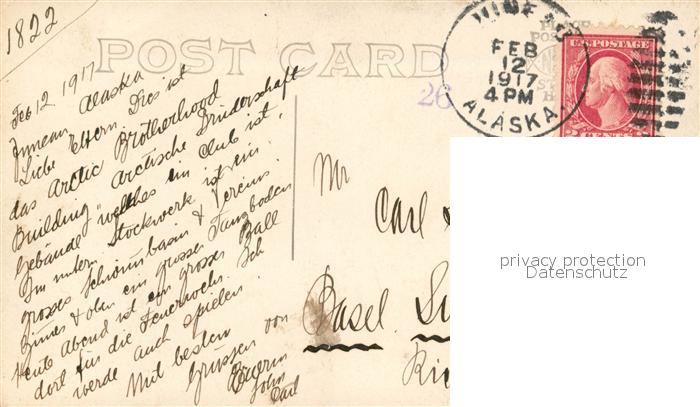 1822
POST CARD
JUNEAU
FEB
12
1917
4 PM
ALASKA.
U.S. POSTAGE
2 CENTS 2
26
Feb 12, 1917
Juneau Alaska
Liebe Eltern. Dies ist
das Arctic Brotherhood
Building "Arctische Bruderschaft
Gebäude" welches ein Club ist,
Im untern Stockwerk ist ein
grosses Schwimmbasin & Vereins
Zimer & oben ein grosser Tanzboden
Heute abend ist ein grosser Ball
dort für die Feuerwehr. Ich
werde auch spielen
Mit besten
Grüssen von
Euerm
Sohn
Carl
Mr
Carl
Basel.
privacy protection
Datenschutz